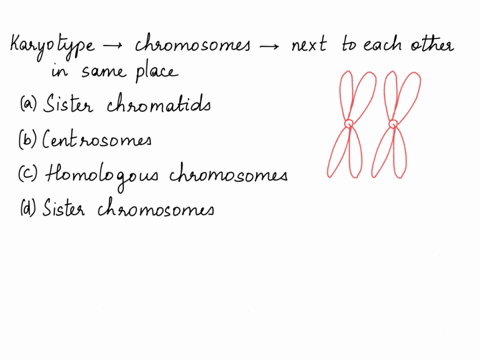 Karyotype → chromosomes → next to each other
in same place
(a) Sister chromatids
(b) Centrosomes
(c) Homologous chromosomes
(d) Sister chromosomes